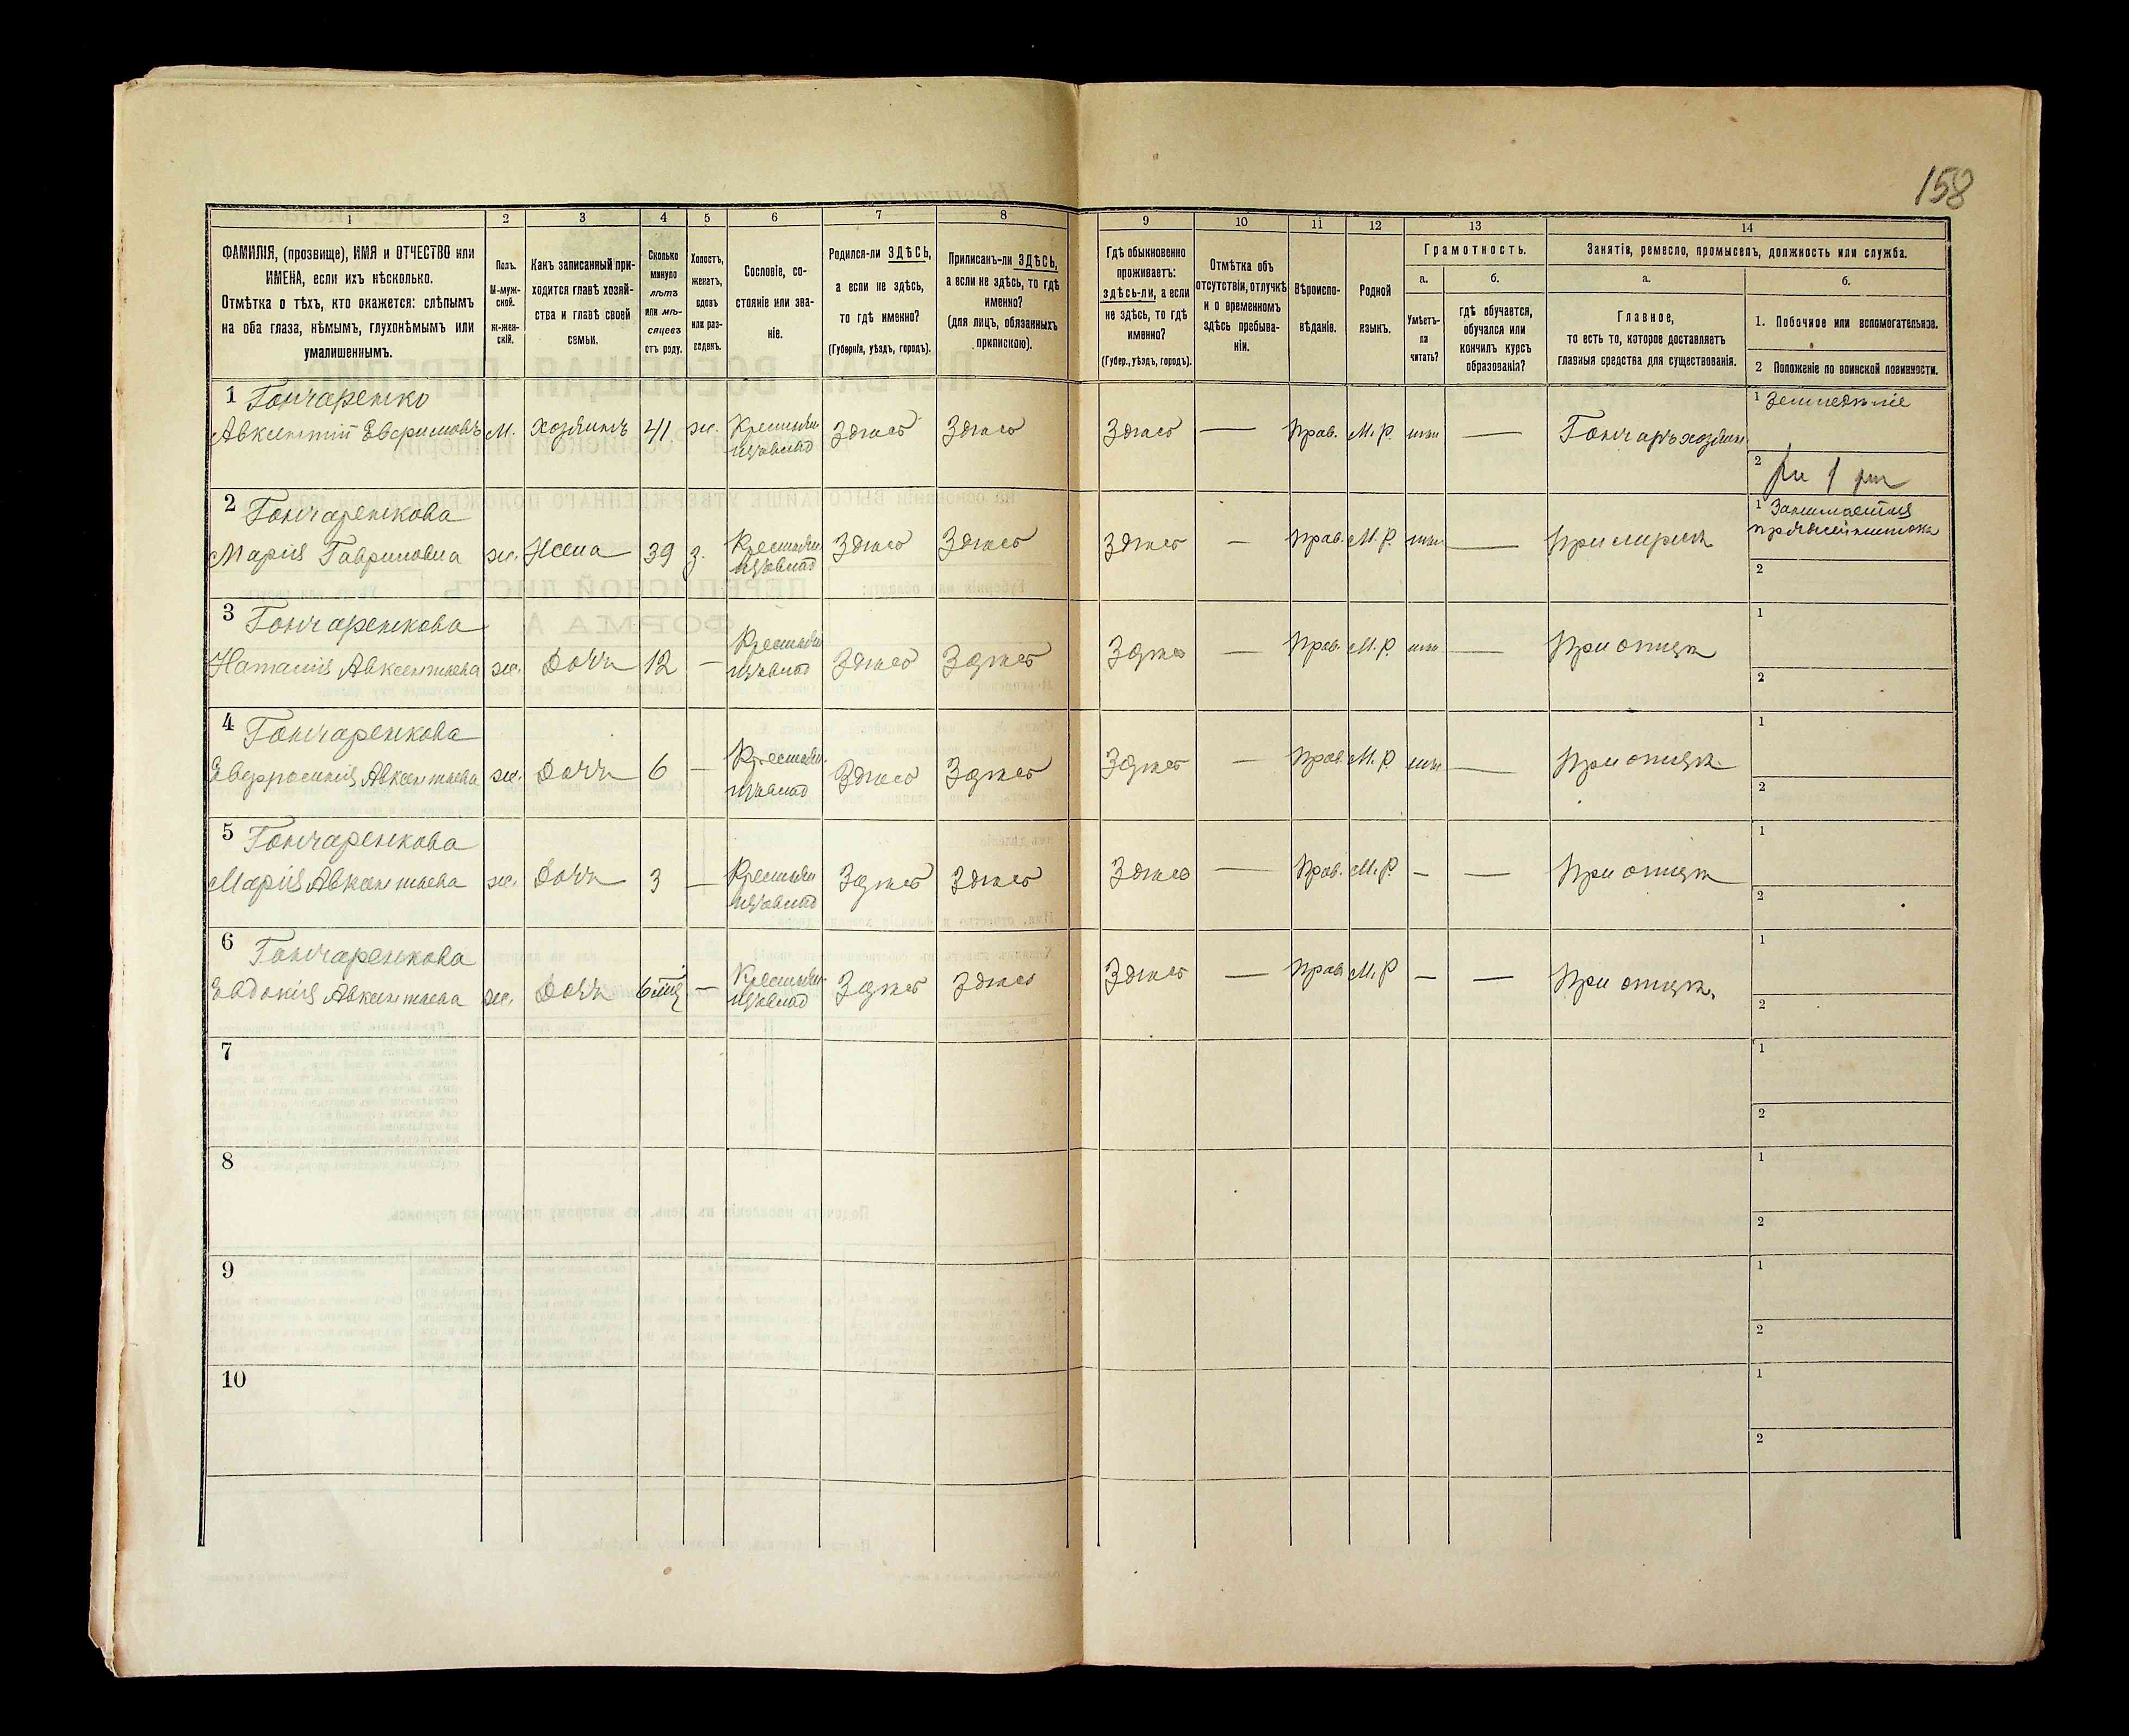 158
1 2 3 4 5 6 7 8 9 10 11 12 13 14
ФАМИЛІЯ, (прозвище), ИМЯ и ОТЧЕСТВО или
ИМЕНА, если ихъ нѣсколько.
Отмѣтка о тѣхъ, кто окажется: слѣпымъ
на оба глаза, нѣмымъ, глухонѣмымъ или
умалишеннымъ.
Полъ.
М-муж-
ской.
ж-жен-
скій.
Какъ записанный при-
ходится главѣ хозяй-
ства и главѣ своей
семьи.
Сколько
минуло
лѣтъ
или мѣ-
сяцевъ
отъ роду.
Холостъ,
женатъ,
вдовъ
или раз-
веденъ.
Сословіе, со-
стояніе или зва-
ніе.
Родился-ли ЗДѢСЬ,
а если не здѣсь,
то гдѣ именно?
(Губернія, уѣздъ, городъ).
Приписанъ-ли ЗДѢСЬ,
а если не здѣсь, то гдѣ
именно?
(для лицъ, обязанныхъ
припискою).
Гдѣ обыкновенно
проживаетъ:
здѣсь-ли, а если
не здѣсь, то гдѣ
именно?
(Губер., уѣздъ, городъ).
Отмѣтка объ
отсутствіи, отлучкѣ
и о временномъ
здѣсь пребыва-
ніи.
Вѣроиспо-
вѣданіе.
Родной
языкъ.
Грамотность.
а.
Умѣетъ-
ли
читать?
б.
гдѣ обучается,
обучался или
кончилъ курсъ
образованія?
Занятія, ремесло, промыселъ, должность или служба.
а.
Главное,
то есть то, которое доставляетъ
главныя средства для существованія.
б.
1. Побочное или вспомогательное.
2 Положеніе по воинской повинности.
1 Гончаренко
Авксентій Евфимовъ М. Хозяинъ 41 ж. Крестьян. Здѣсь Здѣсь Здѣсь — Прав. М. р. — Гончаръ хозяин
1 Земледѣліе
2
2 Гончаренкова
Марія Гавриловна ж. Жена 39 з. Крестьян. Здѣсь Здѣсь Здѣсь — Прав. М. р. — При мужѣ
1 Занимается
2
3 Гончаренкова
Наталія Авксентьева ж. Дочь 12 — Крестьян. Здѣсь Здѣсь Здѣсь — Прав. М. р. — При отцѣ
1
2
4 Гончаренкова
Евфросинія Авксентьева ж. Дочь 6 — Крестьян. Здѣсь Здѣсь Здѣсь — Прав. М. р. — При отцѣ
1
2
5 Гончаренкова
Марія Авксентьева ж. Дочь 3 — Крестьян. Здѣсь Здѣсь Здѣсь — Прав. М. р. — — При отцѣ
1
2
6 Гончаренкова
Евдокія Авксентьева ж. Дочь 6 мѣц — Крестьян. Здѣсь Здѣсь Здѣсь — Прав М. р — — При отцѣ.
1
2
7
1
2
8
1
2
9
1
2
10
1
2